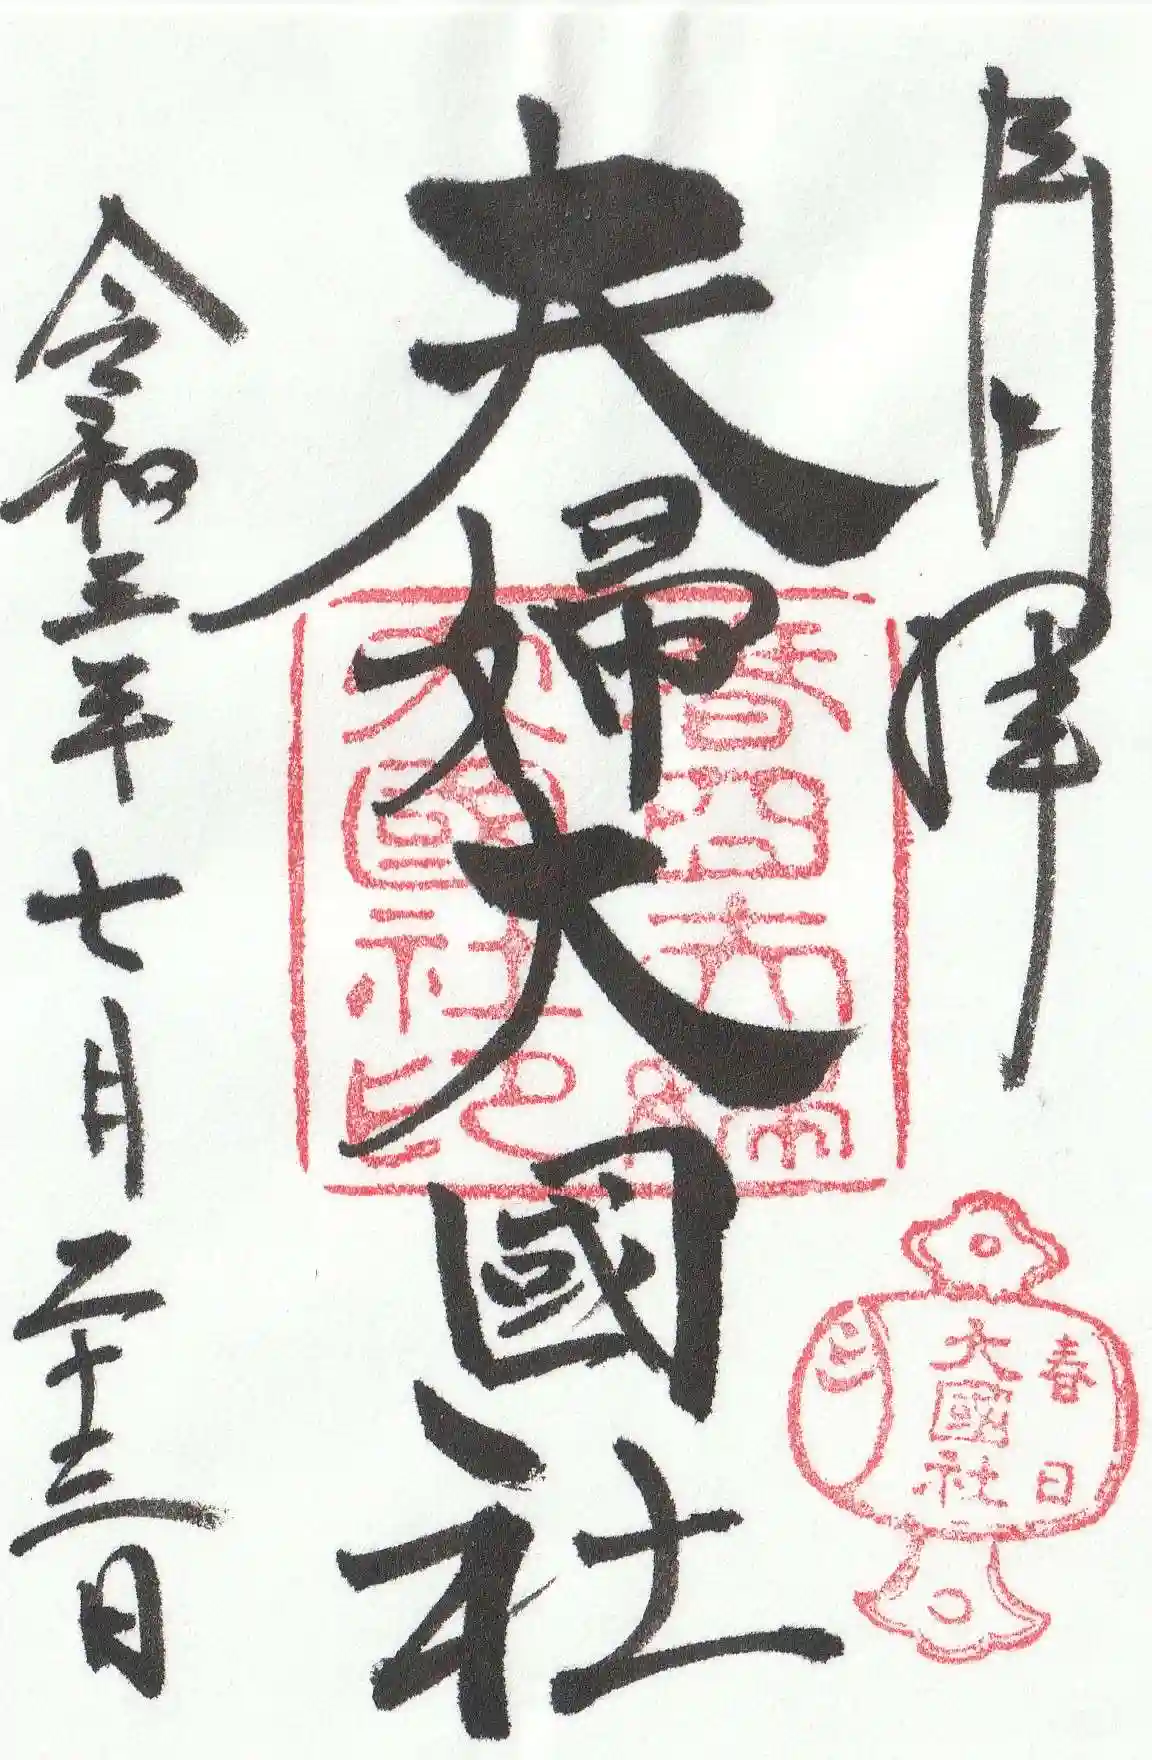 奉拝
夫婦大國社
令和三年七月二十三日
春日夫婦
大國社印
春日
大國社